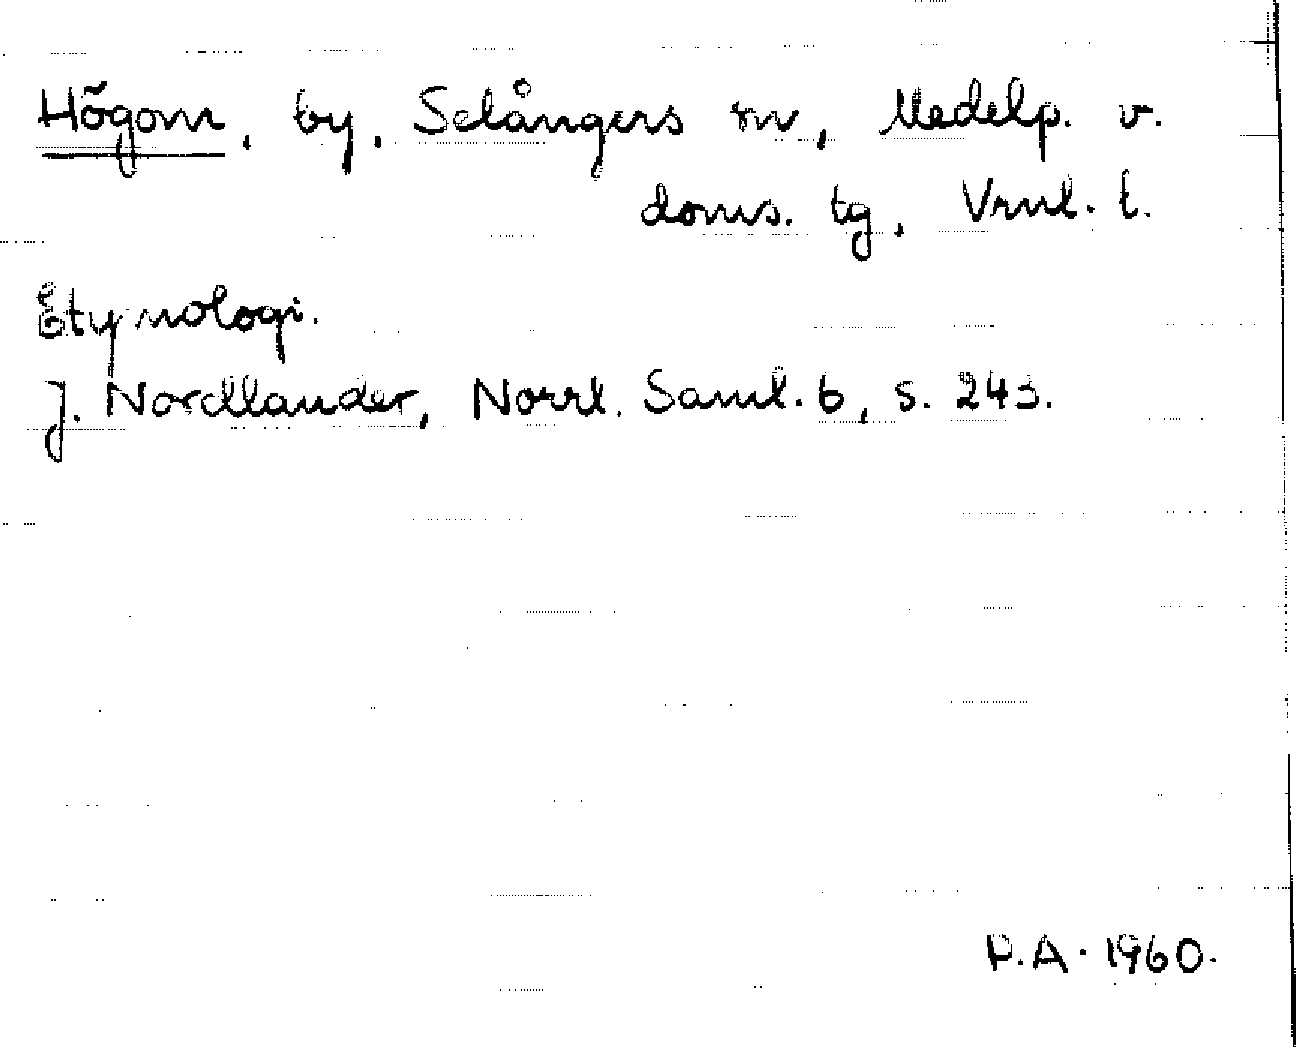 Högom, by, Selångers sn, Medelp. v.
doms. tg, Vrnl. l.
Etymologi.
J. Nordlander, Norrl. Saml. 6, s. 243.
P.A. 1960.